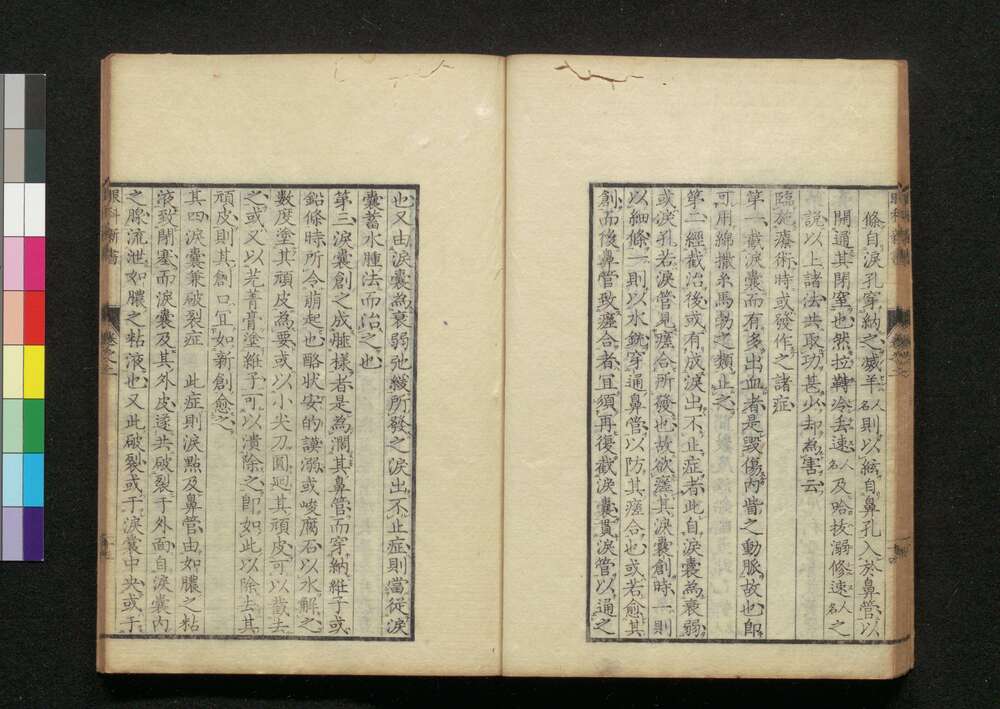 條自淚孔穿納之減羊人名則以絃自鼻孔入於鼻管以
開通其閉窒也然拉鞾冷去速人名及哈抜溺修速人名之
說以上諸法共取功甚少却為害云
臨施療術時或發作之諸症
第一截淚囊而有多出血者是毀傷內眥之動脈故也即
可用綿撒糸馬勃之類止之
第二經截治後或有成淚出不止症者此自淚囊為衰弱
或淚孔若淚管見瘞合所發也故欲瘞其淚囊創時一則
以細條一則以水銃穿通鼻管以防其瘞合也或若愈其
創而後鼻管致瘞合者宜須再復截淚囊貫淚管以通之
也又由淚囊為衰弱弛緩所發之淚出不止症則當從淚
囊蓄水腫法而治之也
第三淚囊創之成胝樣者是為濶其鼻管而穿納絍子或
鉛條時所令萌起也酪狀安的謨溺或峻腐石以水解之
數度塗其頑皮為要或以小尖刀圓廻其頑皮可以截去
之或又以芫菁膏塗絍子可以潰除之即如此以除去其
頑皮則其創口宜如新創愈之
其四淚囊兼破裂症 此症則淚點及鼻管由如膿之粘
液致閉塞而淚囊及其外皮遂共破裂于外面自淚囊內
之膿流泄如膿之粘液也又此破裂或于淚囊中央或于
眼科新書 卷之